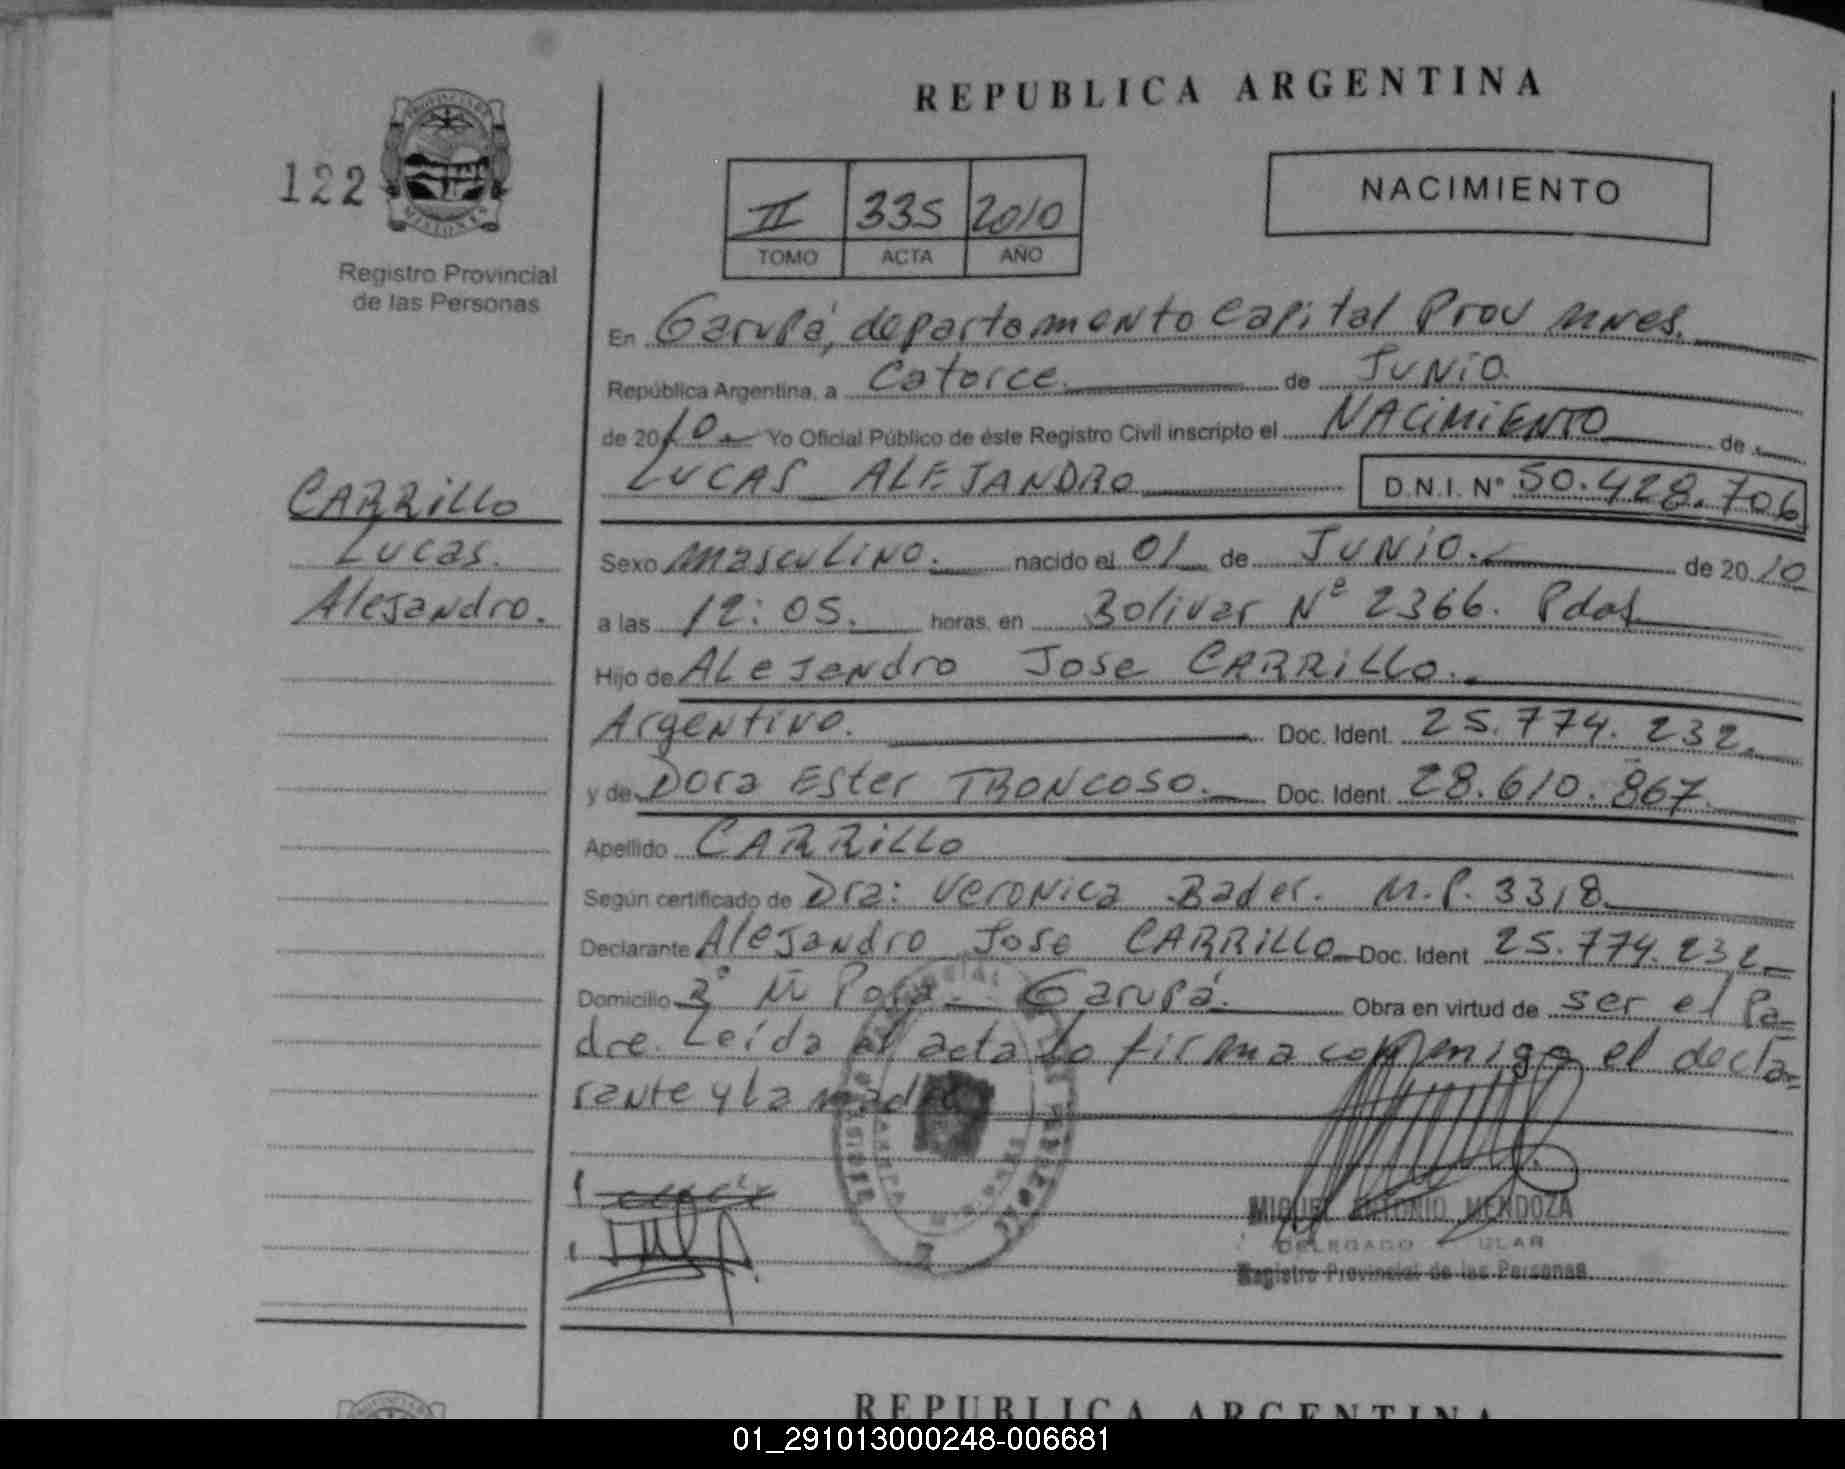 REPUBLICA ARGENTINA
122
PROVINCIA DE
MISIONES
Registro Provincial
de las Personas
II 335 2010
TOMO ACTA AÑO
NACIMIENTO
En Garupá, departamento Capital Prov Mnes.
República Argentina, a Catorce. de Junio.
de 2010 Yo Oficial Público de éste Registro Civil inscripto el NACIMIENTO de
LUCAS ALEJANDRO D.N.I. N° 50.428.706
CARRILLO
Lucas.
Alejandro.
Sexo masculino. nacido el 01 de JUNIO. de 2010
a las 12:05. horas, en Bolivar Nº 2366. Pdas
Hijo de Alejandro Jose CARRILLO.
Argentino. Doc. Ident. 25.774.232.
y de Dora Ester TRONCOSO. Doc. Ident. 28.610.867.
Apellido CARRILLO
Según certificado de Dra: Veronica Bader. M.P. 3318.
Declarante Alejandro Jose CARRILLO Doc. Ident 25.774.232
Domicilio Garupá. Obra en virtud de ser el Pa=
dre. Leída el acta la firma conmigo el decla=
rante y la madre
MIGUEL ANTONIO MENDOZA
DELEGADO
Registro Provincial de las Personas
REPUBLICA ARGENTINA
01_291013000248-006681